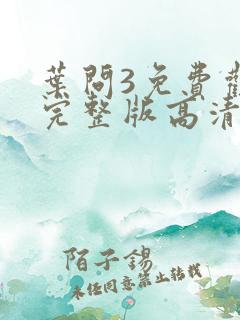 葉問3免費觀
完整版高清
陌子錫
未经同意禁止转载